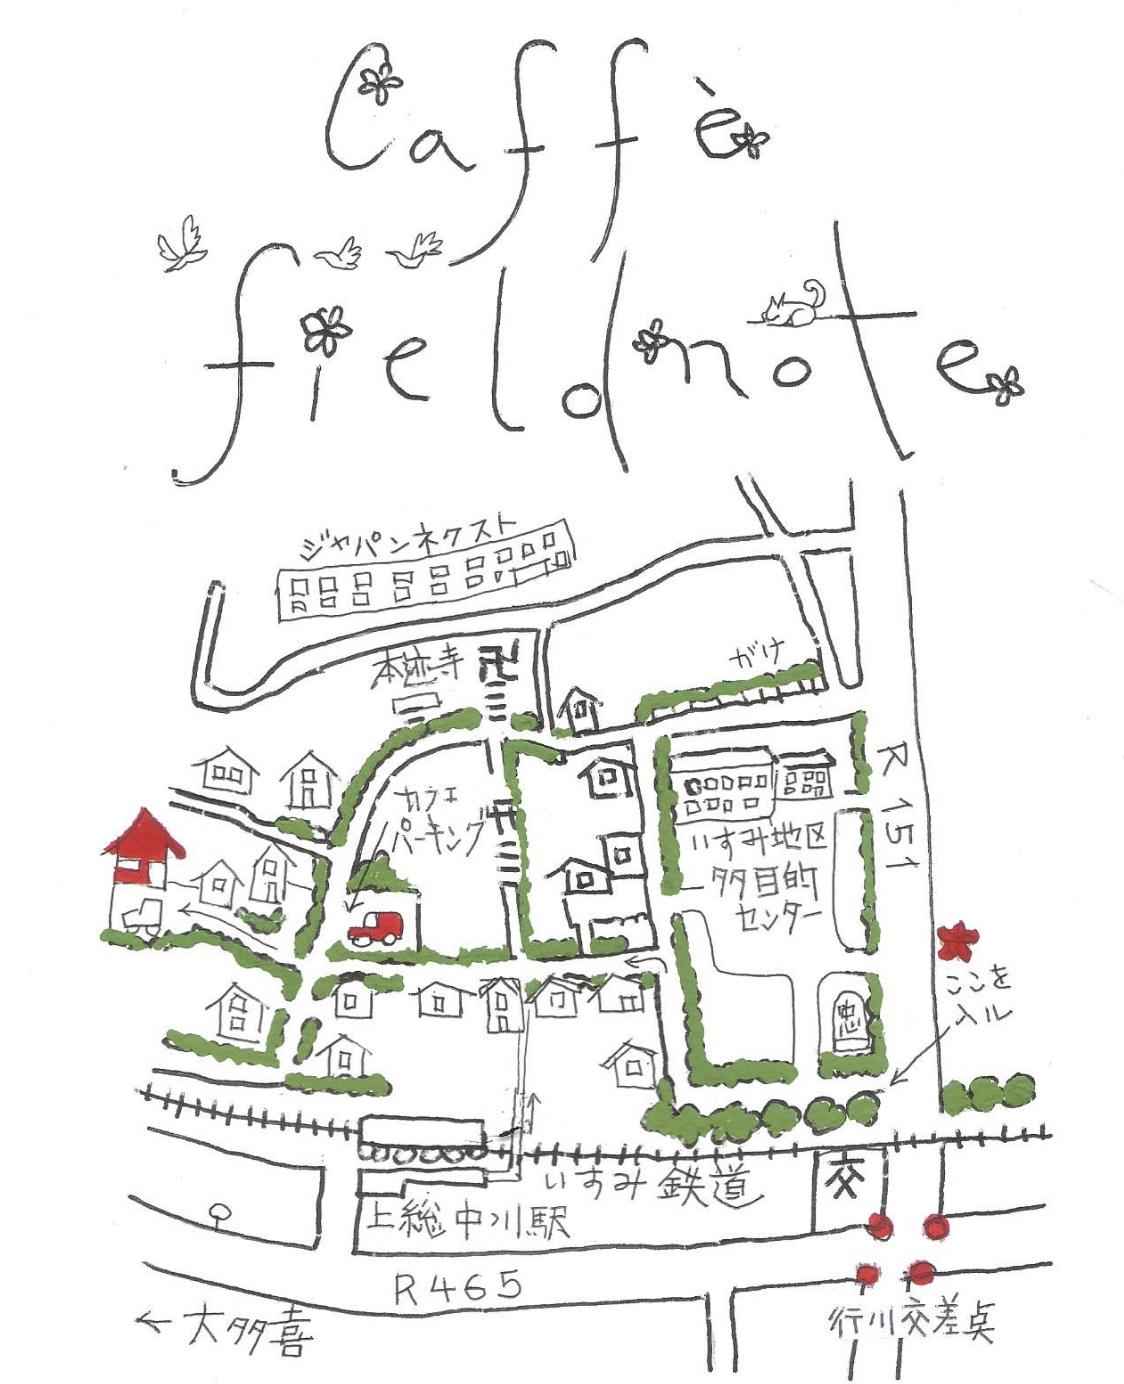 Caffè
fieldnote
ジャパンネクスト
本迹寺
卍
がけ
R151
カフェ
パーキング
いすみ地区
多目的
センター
ここを
入ル
忠
いすみ鉄道
交
上総中川駅
R465
← 大多喜
行川交差点